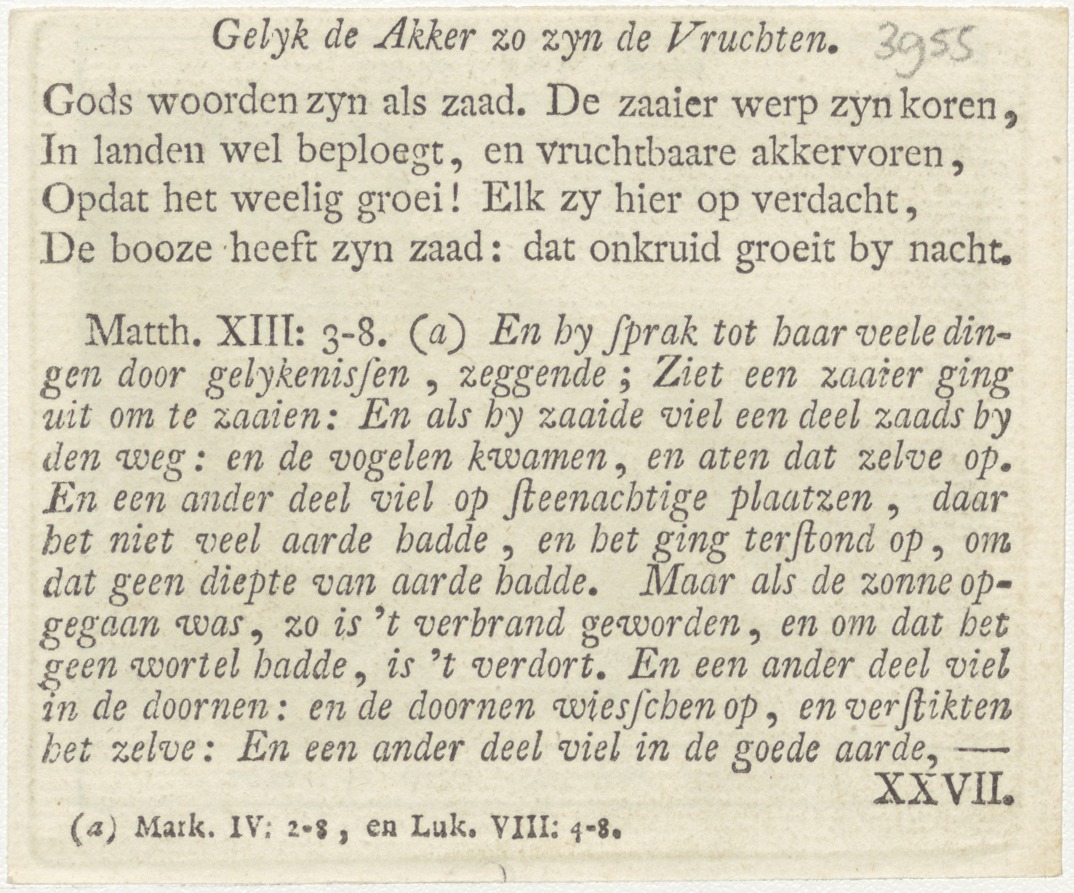 Gelyk de Akker zo zyn de Vruchten. 3955
Gods woorden zyn als zaad. De zaaier werp zyn koren,
In landen wel beploegt, en vruchtbaare akkervoren,
Opdat het weelig groei! Elk zy hier op verdacht,
De booze heeft zyn zaad: dat onkruid groeit by nacht.
Matth. XIII: 3-8. (a) En hy ſprak tot haar veele din-
gen door gelykenisſen, zeggende; Ziet een zaaier ging
uit om te zaaien: En als hy zaaide viel een deel zaads by
den weg: en de vogelen kwamen, en aten dat zelve op.
En een ander deel viel op ſteenachtige plaatzen, daar
het niet veel aarde hadde, en het ging terſtond op, om
dat geen diepte van aarde hadde. Maar als de zonne op-
gegaan was, zo is 't verbrand geworden, en om dat het
geen wortel hadde, is 't verdort. En een ander deel viel
in de doornen: en de doornen wiesſchen op, en verſtikten
het zelve: En een ander deel viel in de goede aarde, —
XXVII.
(a) Mark. IV: 2-8, en Luk. VIII: 4-8.